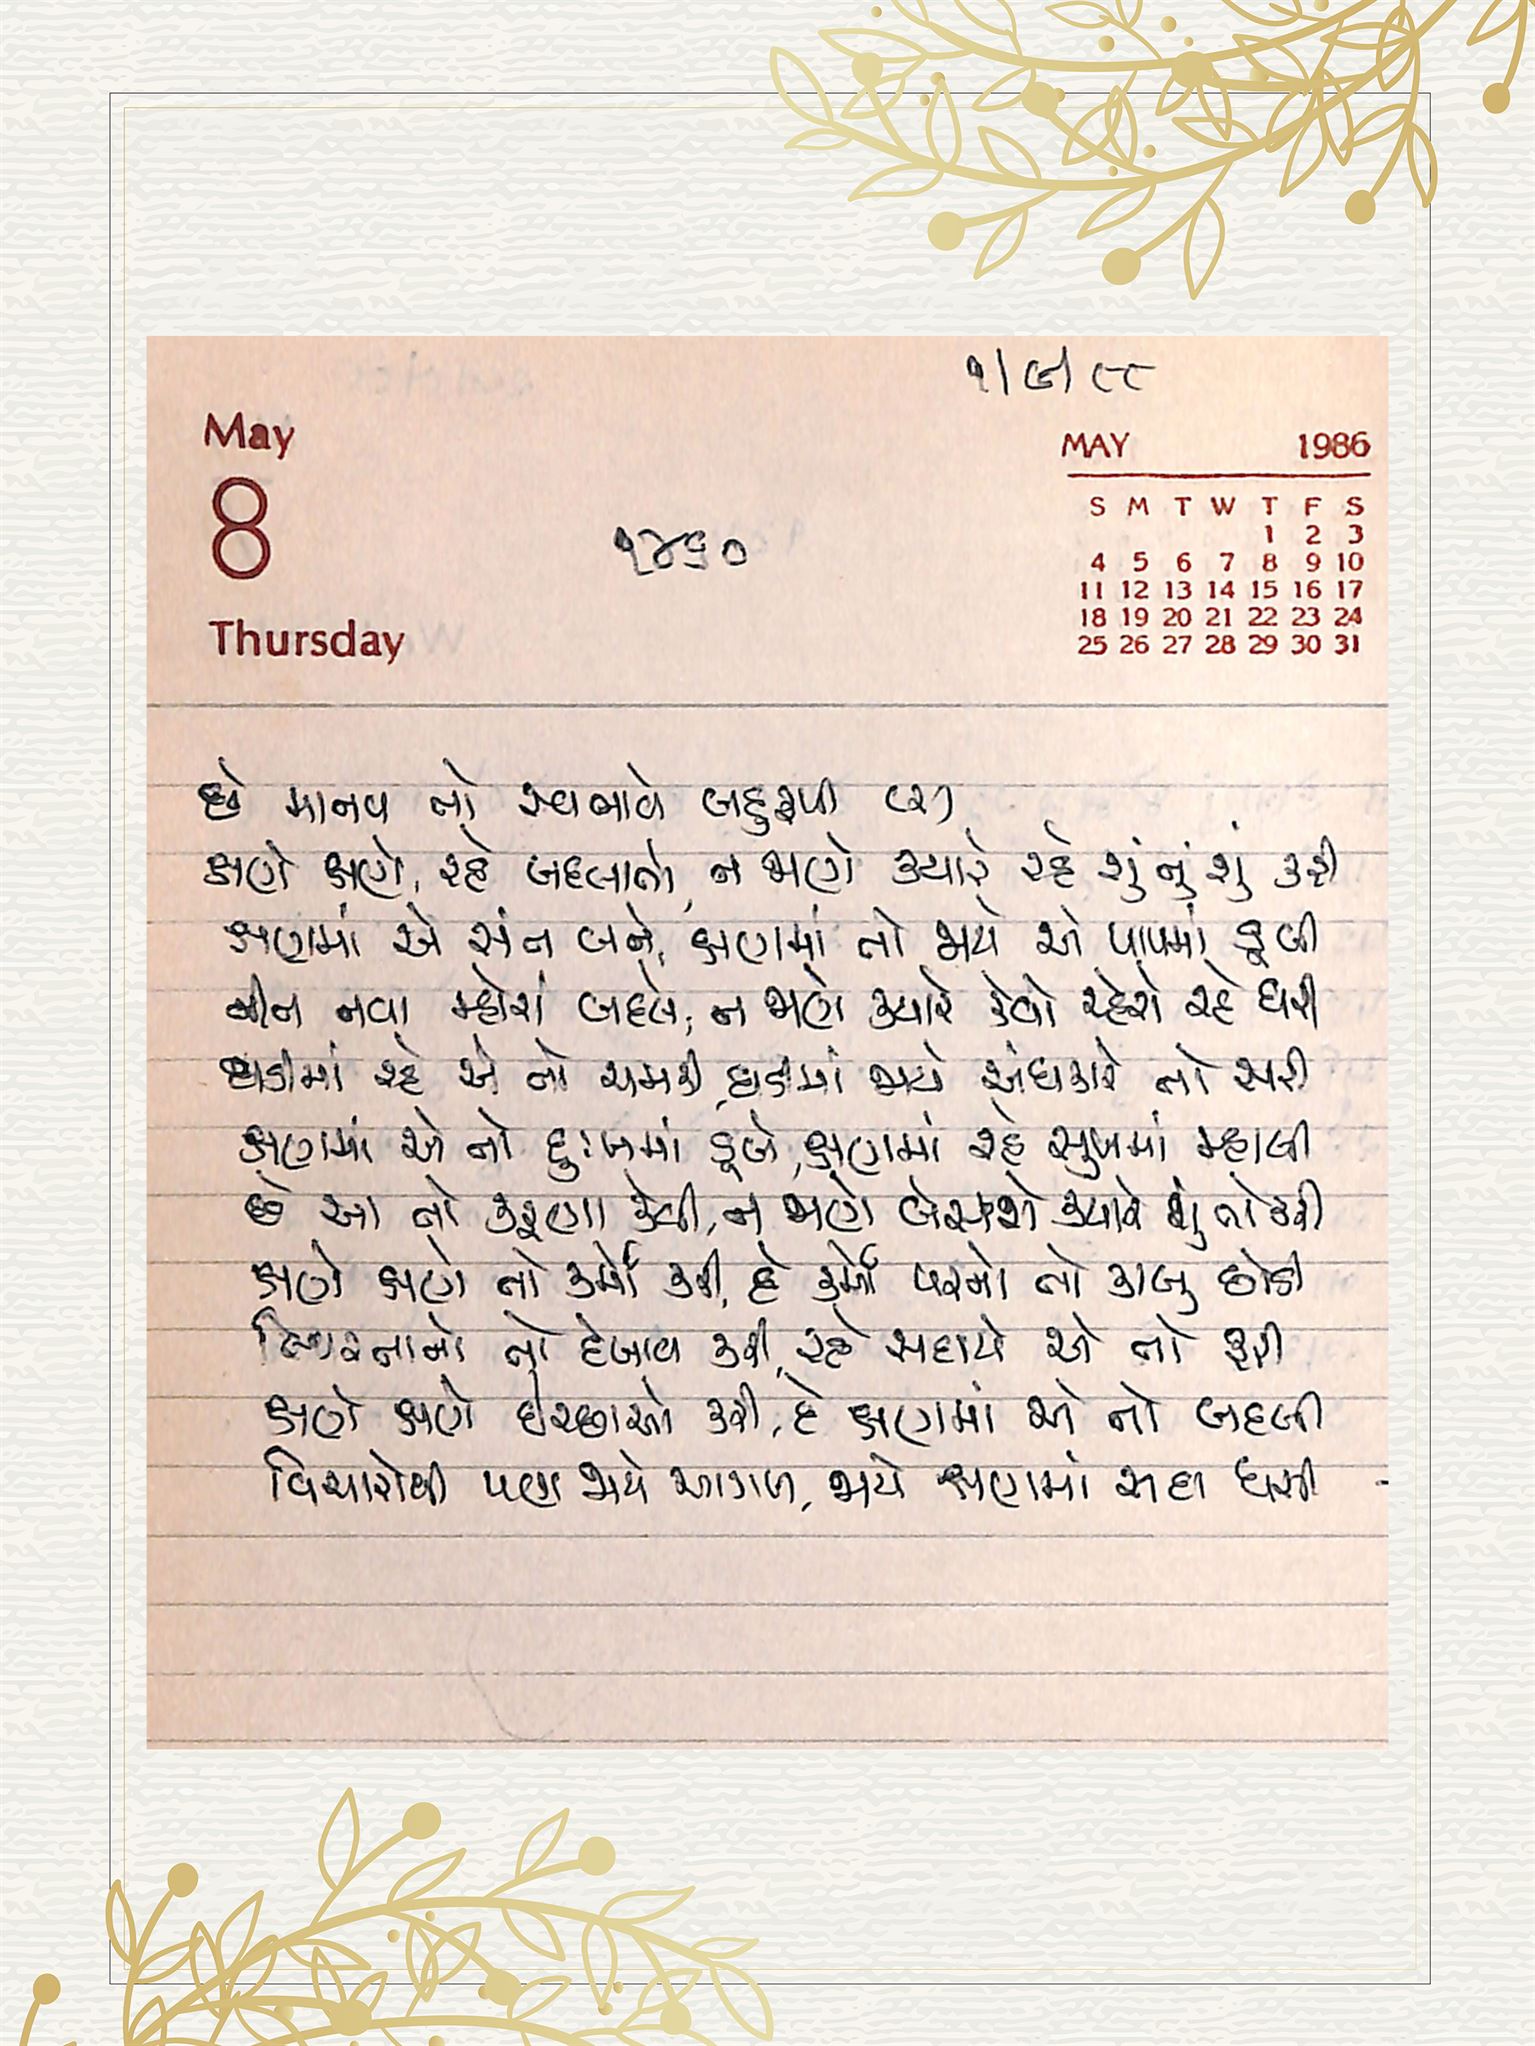 ૧/૯/૮૮
May
8
Thursday
૧૪૬૦
MAY 1986
S M T W T F S
1 2 3
4 5 6 7 8 9 10
11 12 13 14 15 16 17
18 19 20 21 22 23 24
25 26 27 28 29 30 31
છે માનવ તો સ્વભાવે બહુરૂપી (૨)
ક્ષણે ક્ષણે, રહે બદલાતો, ન જાણે ક્યારે રહે શું નું શું કરી
ક્ષણમાં એ સંત બને, ક્ષણમાં તો જાયે એ પાપમાં ડૂબી
નીત નવા મ્હોરાં બદલે, ન જાણે ક્યારે કેવો ચ્હેરો રહે ધરી
ઘડીમાં રહે એ તો ચમકી, ઘડીમાં જાયે અંધકારે તો સરી
ક્ષણમાં એ તો દુઃખમાં ડૂબે, ક્ષણમાં રહે સુખમાં મ્હાલી
છે આ તો કરૂણા કેવી, ન જાણે બેસશે ક્યારે શું તો કરી
ક્ષણે ક્ષણે તો કર્મો કરી, દે કર્મો પરનો તો કાબુ છોડી
સ્થિરતાનો તો દેખાવ કરી, રહે સદાયે એ તો ફરી
ક્ષણે ક્ષણે ઇચ્છાઓ કરી, દે ક્ષણમાં એ તો બદલી
વિચારોથી પણ જાયે આગળ, જાયે ક્ષણમાં સદા ધસી